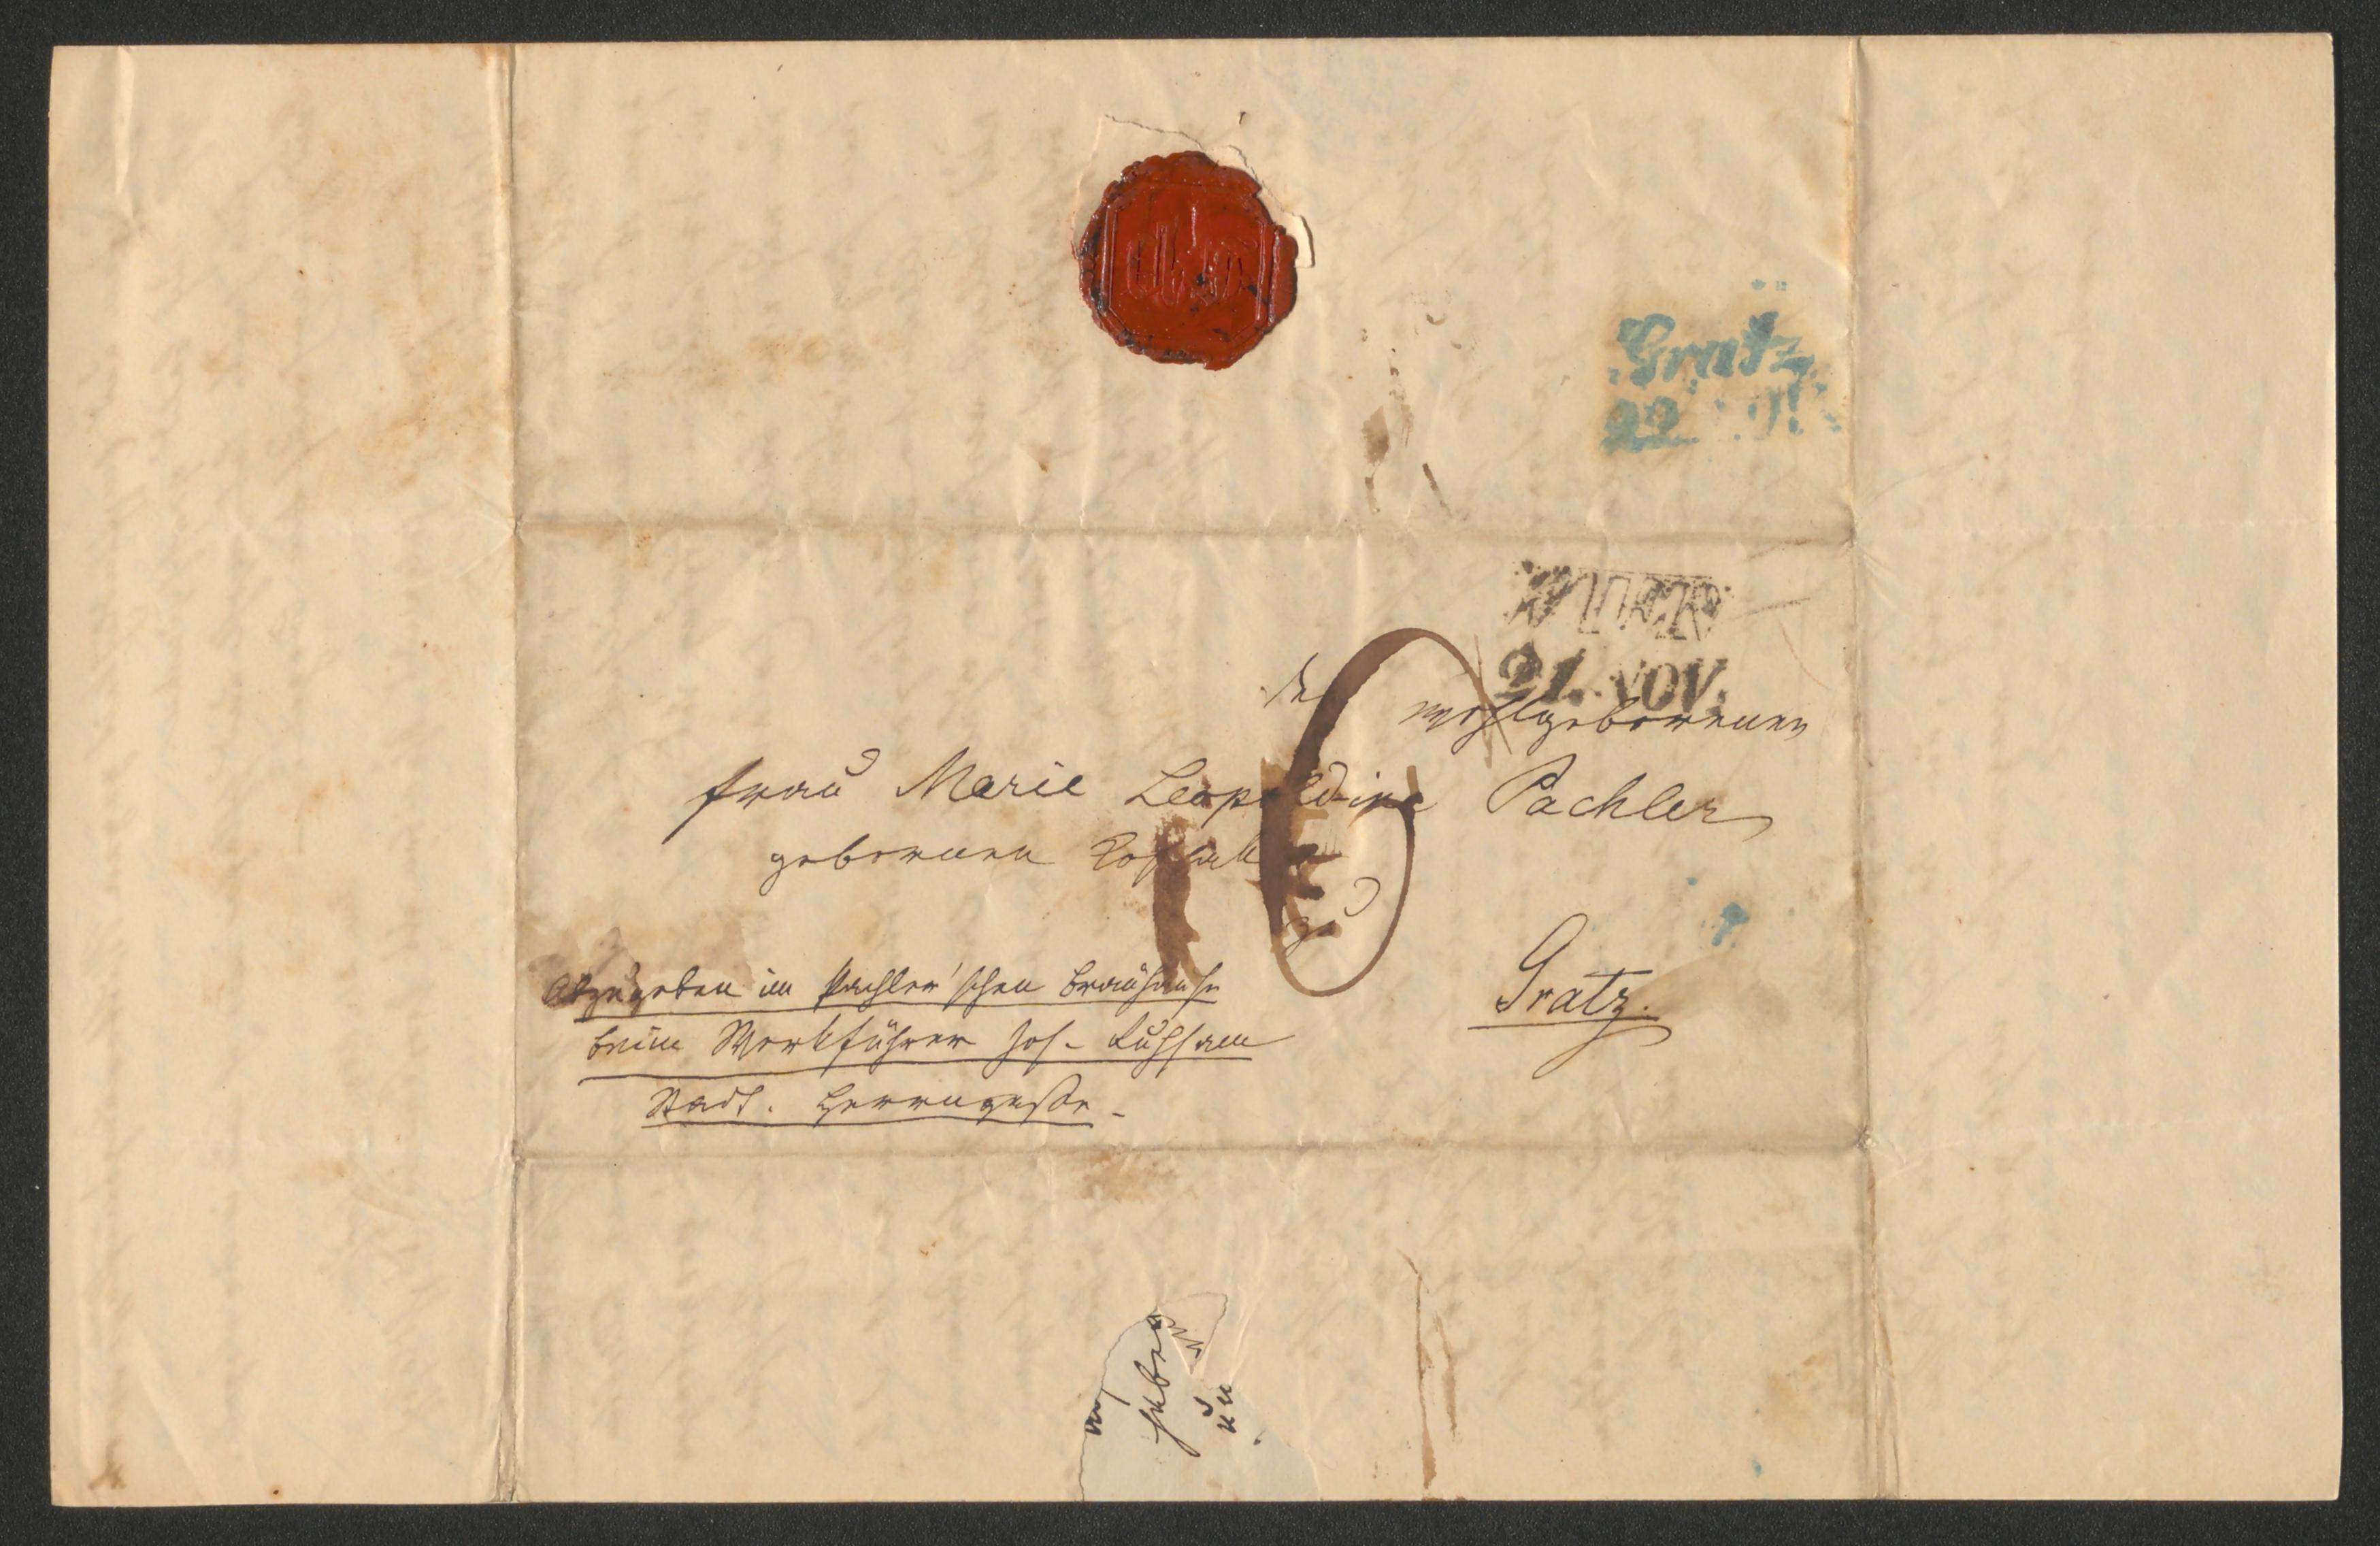 Gratz
22
WIEN
21. NOV.
der wohlgebornenen
Frau Marie Leopoldine Pachler
gebornen Koschak
zu
Gratz.
Abzugeben im Pachler'schen Brauhause
beim Werkführer Jos.
Stadt. Herrengasse -
haben